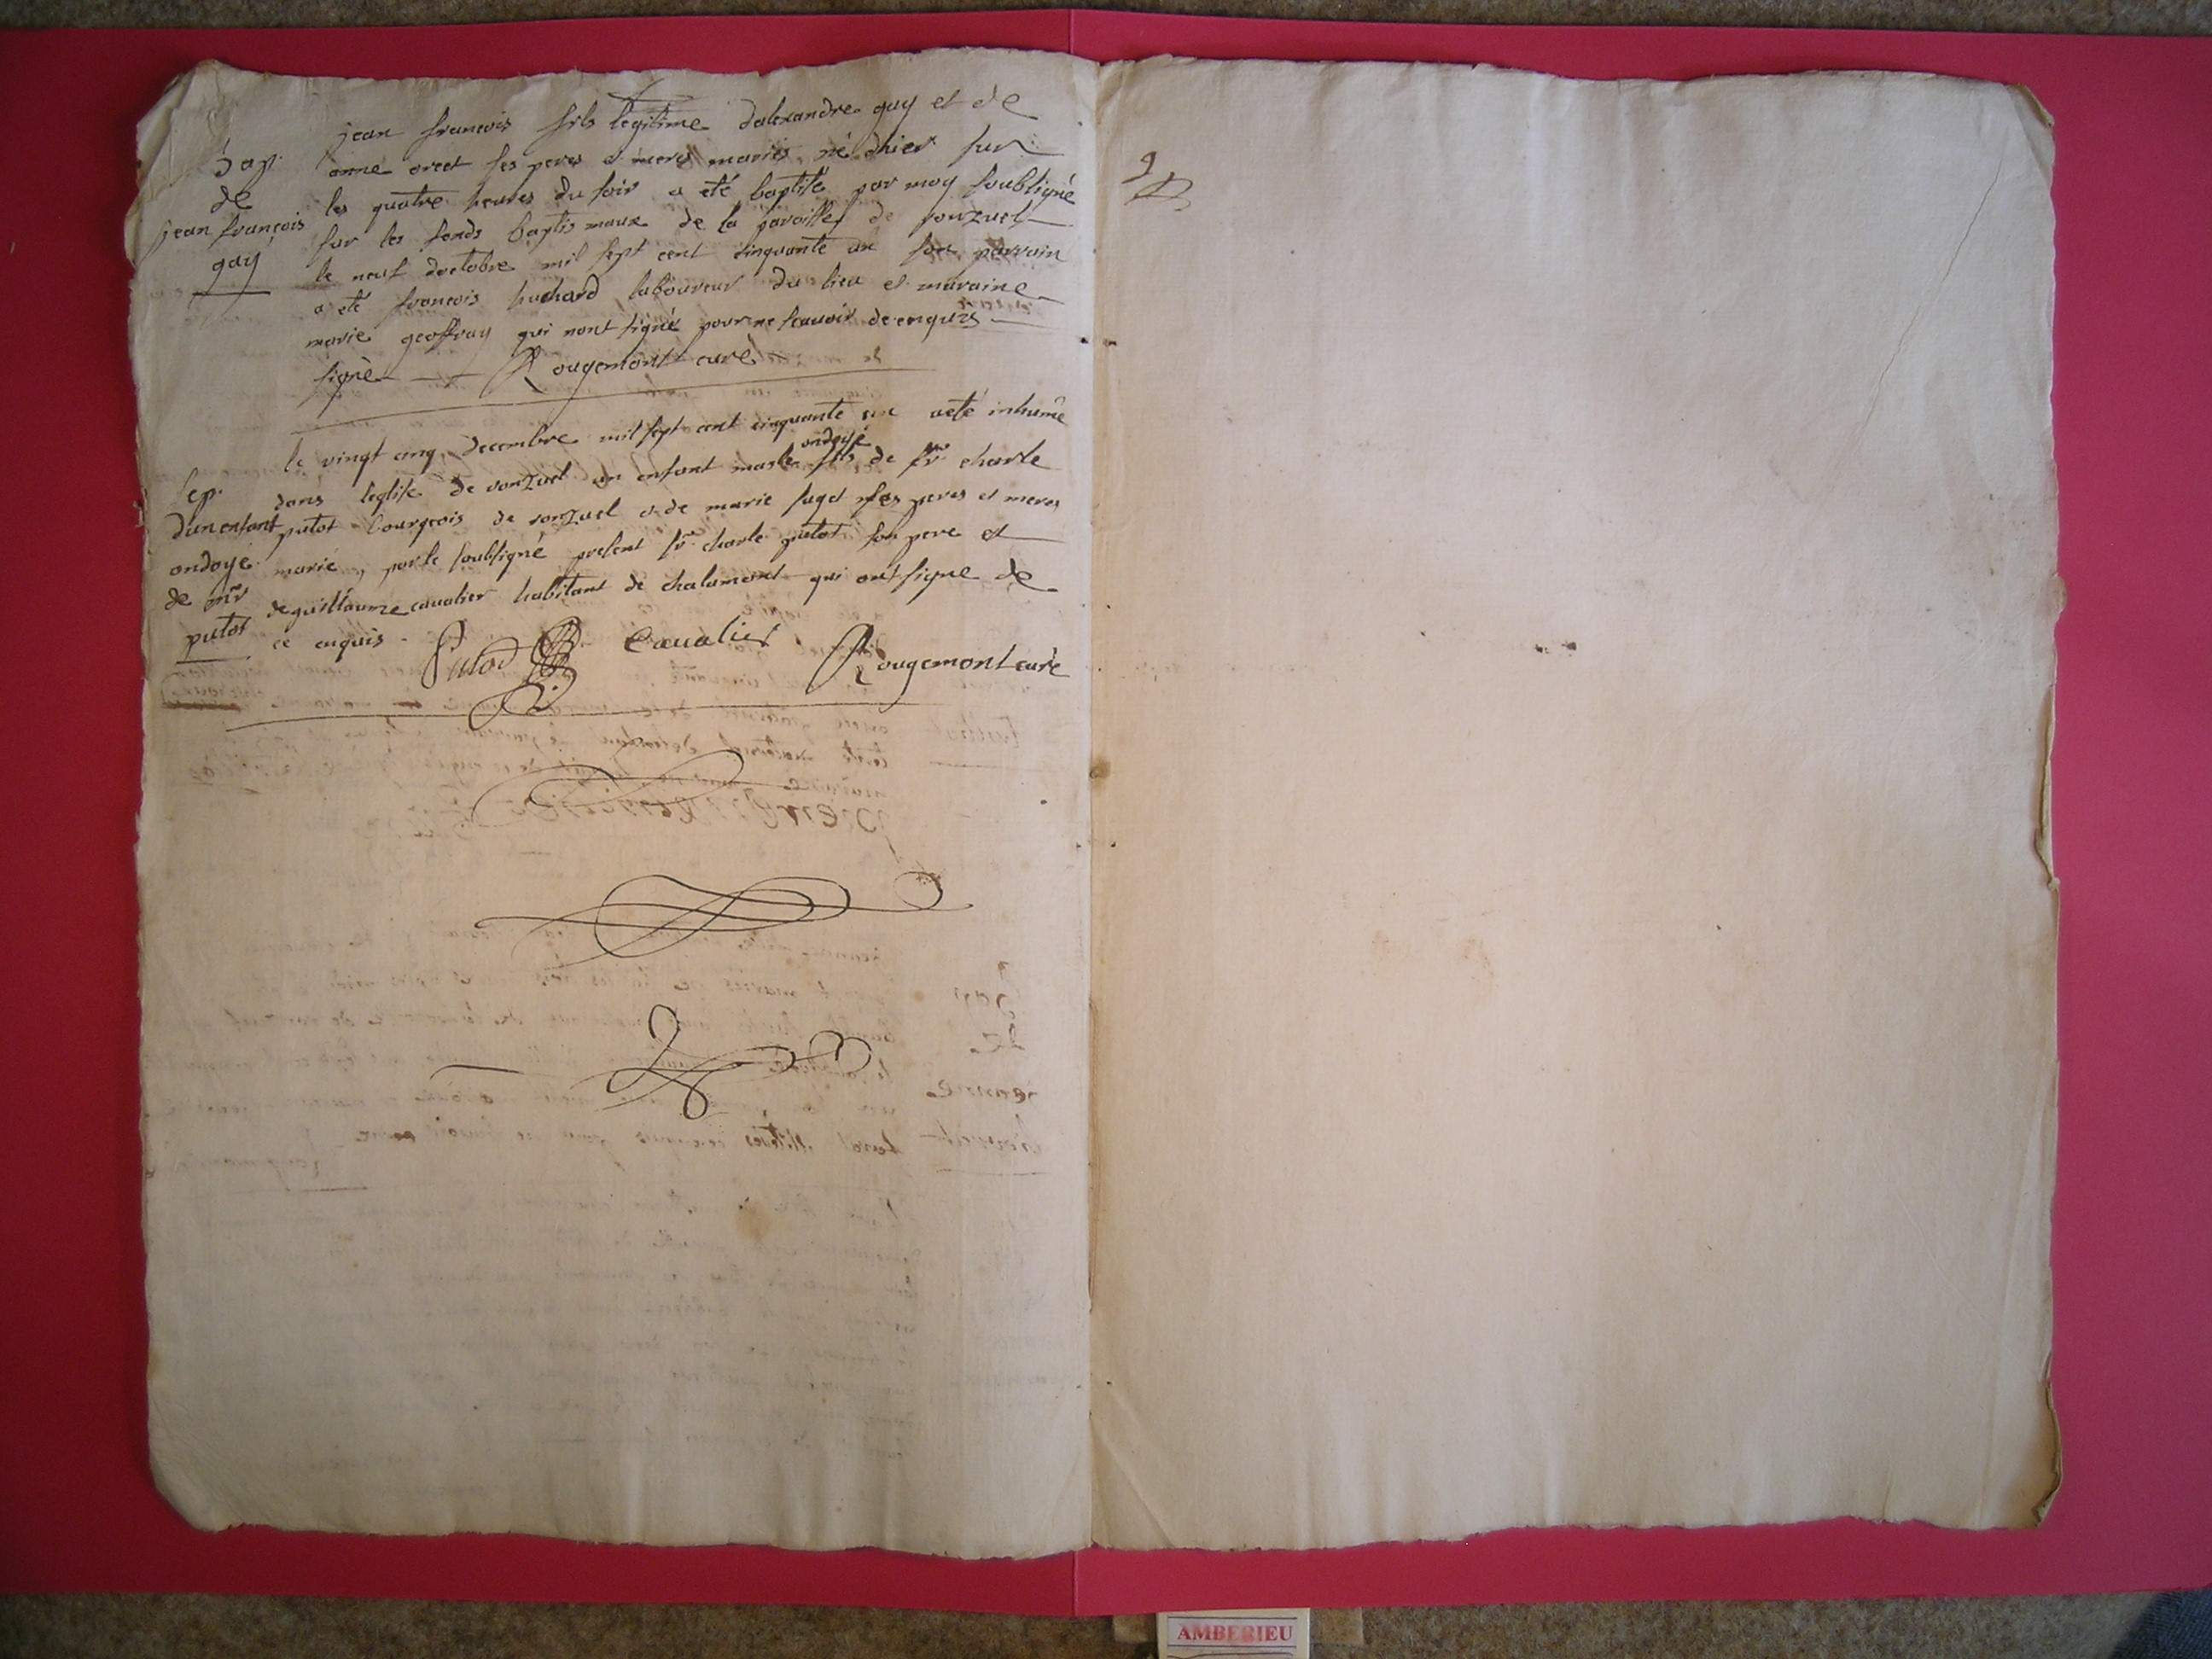 jean francois fils legitime dalexandre guy et de
bap. anne ses peres et meres mariés né dhier sur
de les quatre heures du soir a eté baptisé par moy soubsigné
jean françois sur les fonds baptismaux de la paroisse de ronzuel
guy le neuf doctobre mil sept cent cinquante un son parrain
a eté francois huchard laboureur du lieu et maraine
marie geoffray qui nont signé pour ne scauoir de enquis
signé Rougemont curé
le vingt cinq decembre mil sept cent cinquante un aeté inhumé
ondoyé
sep. dans leglise de ronzuel un enfant masle fils de sr charle
dun enfant putot bourgeois de ronzuel et de marie ses peres et meres
ondoye marié, par le soubsigné present sr charle putot son pere et
de mr de guillaume cavalier habitant de chalamont qui ont signe de
putot ce enquis. Putod Caualier Rougemont curé
9
AMBERIEU